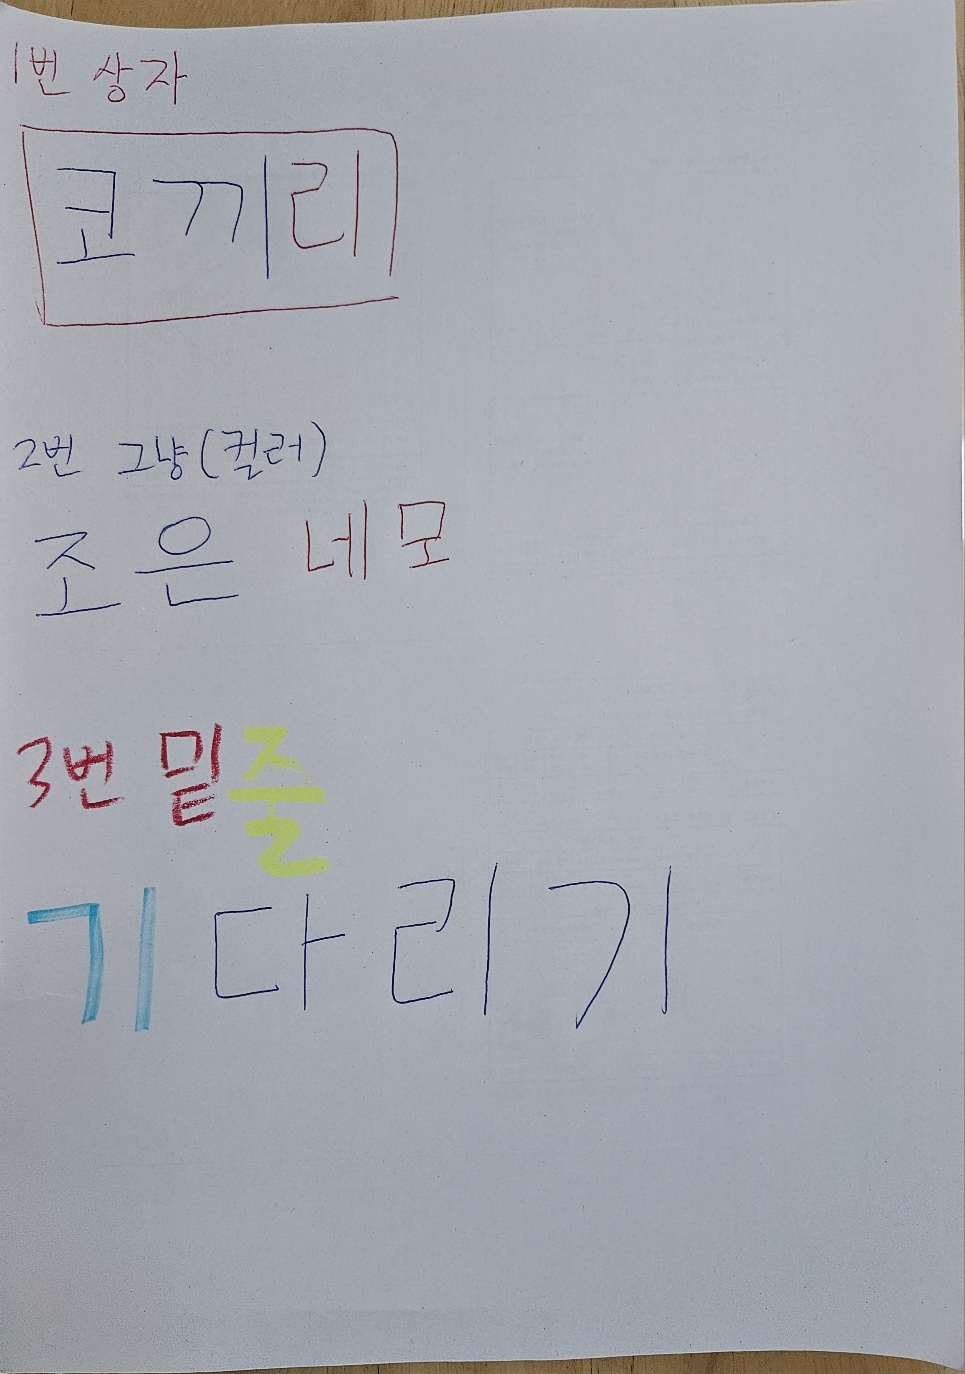 1번 상자
코끼리
2번 그냥(컬러)
조은 네모
3번 밑줄
기다리기